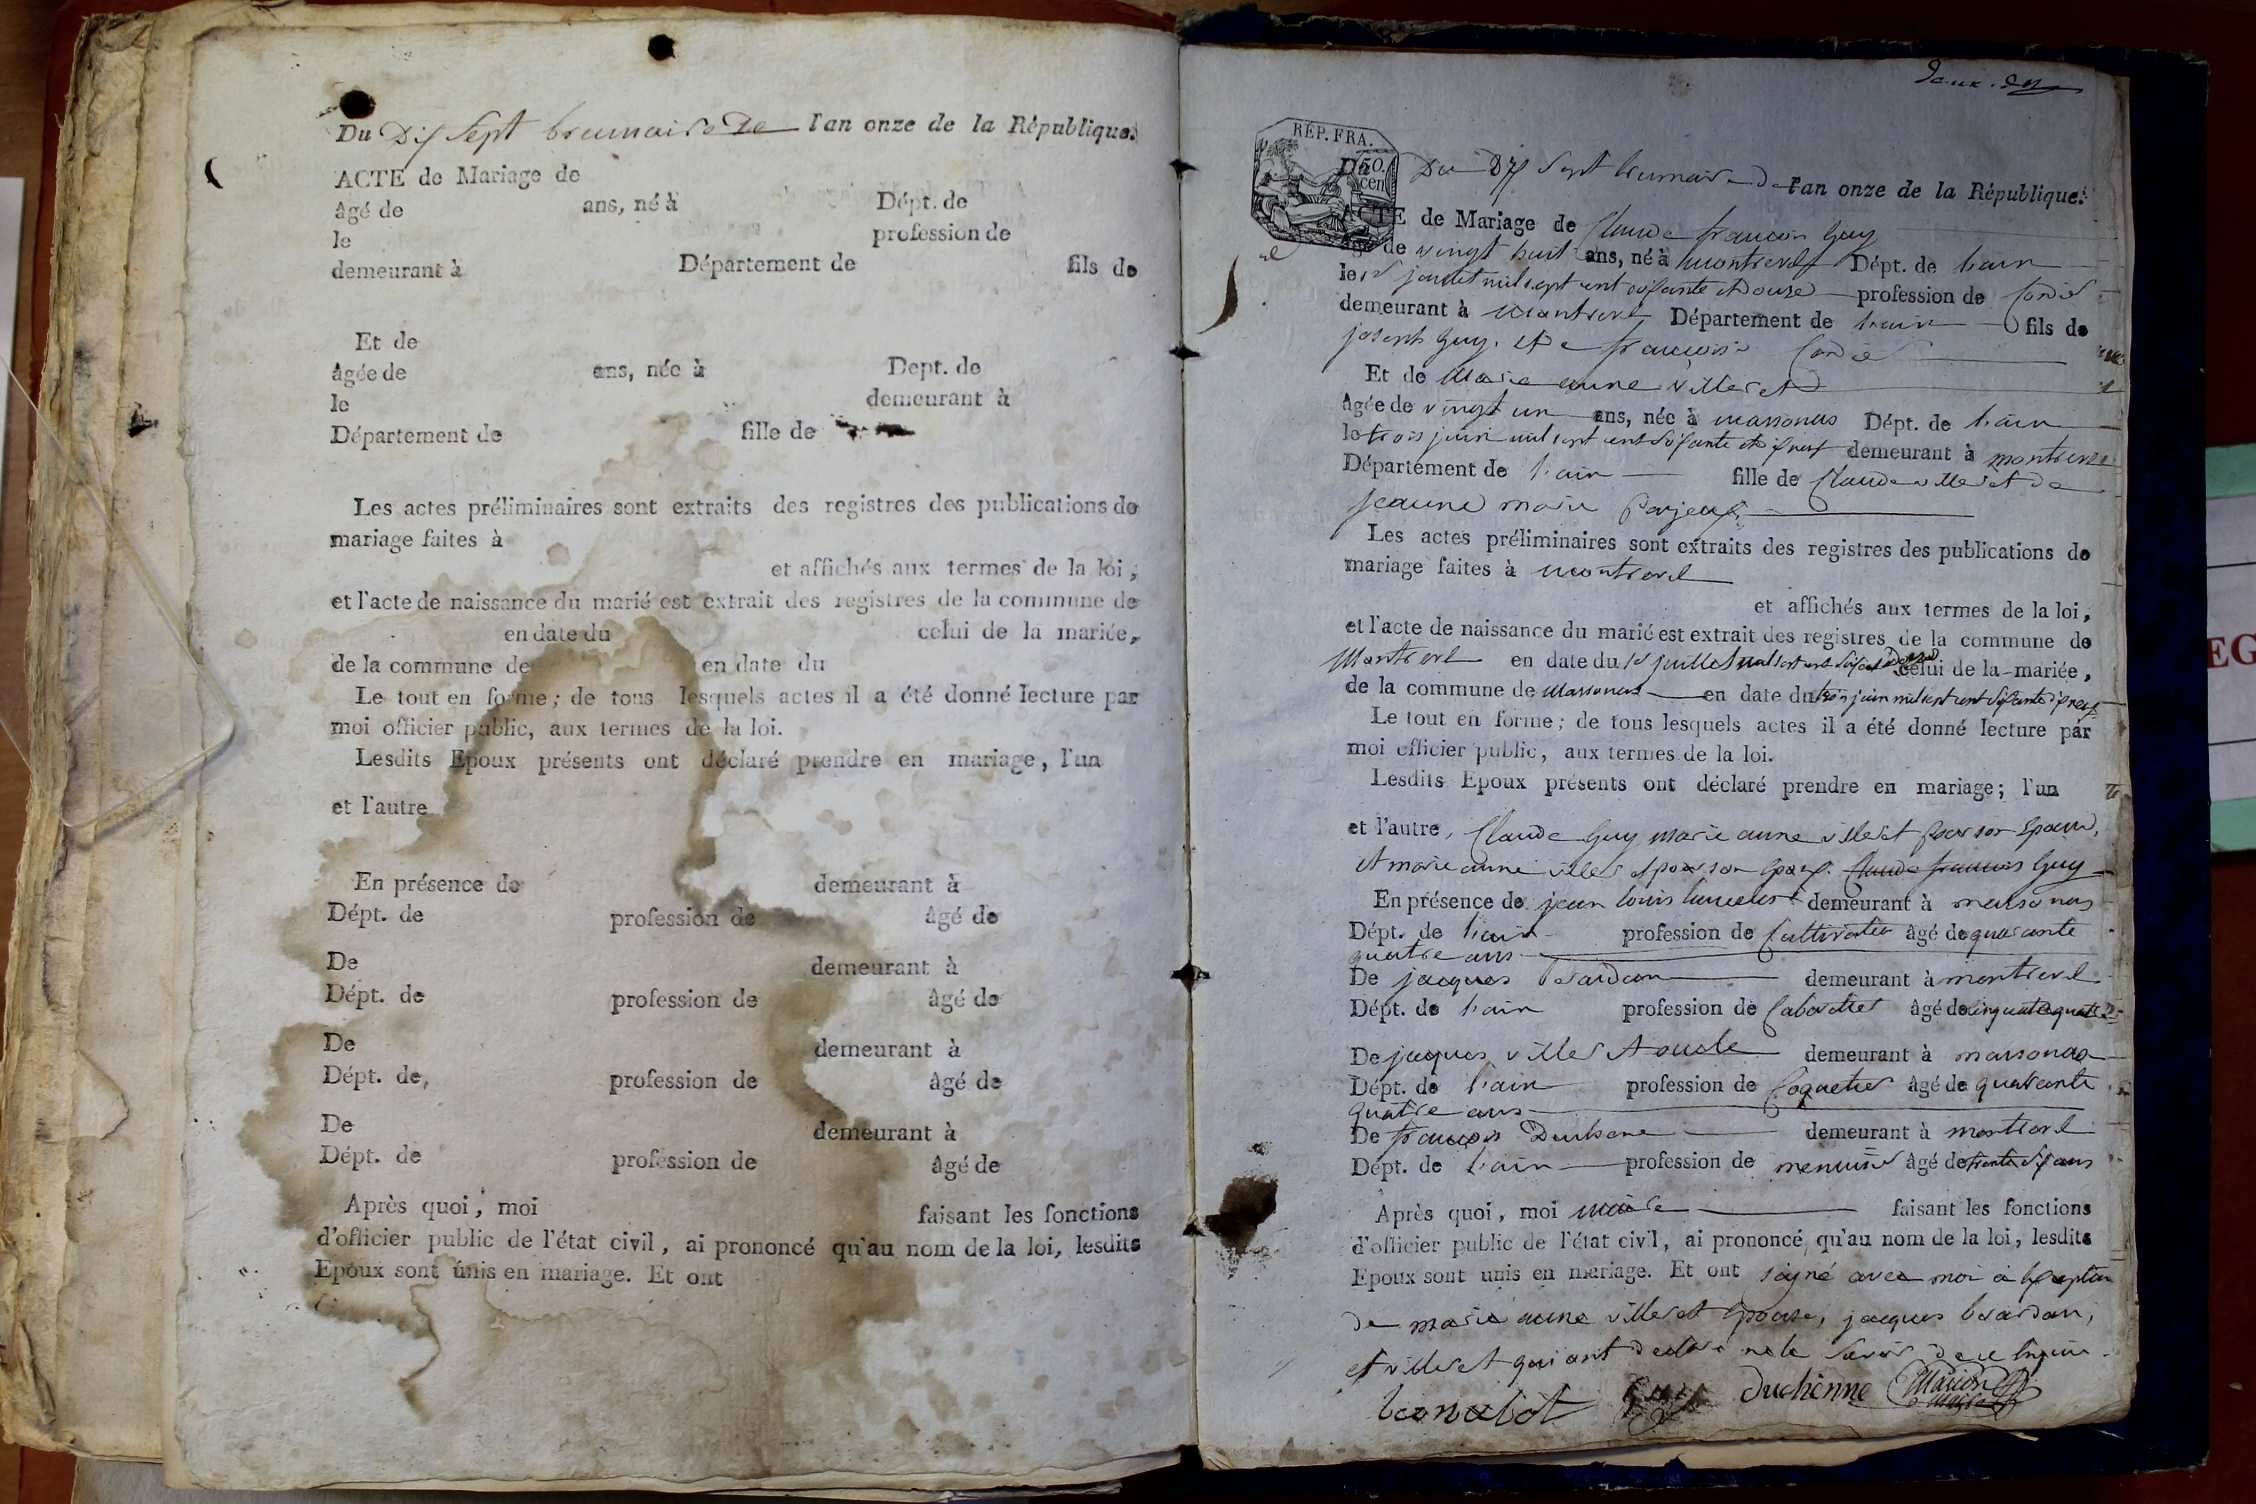 Du Dix Sept brumaire de l'an onze de la République.
ACTE de Mariage de
âgé de ans, né à Dépt. de
le profession de
demeurant à Département de fils de
Et de
âgée de ans, née à Dept. de
le demeurant à
Département de fille de
Les actes préliminaires sont extraits des registres des publications de
mariage faites à
et affichés aux termes de la loi ;
et l'acte de naissance du marié est extrait des registres de la commune de
en date du celui de la mariée,
de la commune de en date du
Le tout en forme ; de tous lesquels actes il a été donné lecture par
moi officier public, aux termes de la loi.
Lesdits Epoux présents ont déclaré prendre en mariage, l'un
et l'autre
En présence de demeurant à
Dépt. de profession de âgé de
De demeurant à
Dépt. de profession de âgé de
De demeurant à
Dépt. de profession de âgé de
De demeurant à
Dépt. de profession de âgé de
Après quoi, moi faisant les fonctions
d'officier public de l'état civil, ai prononcé qu'au nom de la loi, lesdits
Epoux sont unis en mariage. Et ont
RÉP. FRA.
50.
cen
Du Du Dix Sept brumaire de l'an onze de la République.
ACTE de Mariage de Claude francois Guy
âgé de vingt huit ans, né à montrevel Dépt. de l'ain
le juillet mil sept cent soixante et douze profession de
demeurant à Montrevel Département de l'ain fils de
joseph Guy. et de francoise
Et de Marie anne villeret
âgée de vingt un ans, née à marsonas Dépt. de l'ain
le trois juin mil sept cent soixante et neuf demeurant à montrevel
Département de l'ain fille de Claude villeret de
jeanne marie
Les actes préliminaires sont extraits des registres des publications de
mariage faites à montrevel
et affichés aux termes de la loi,
et l'acte de naissance du marié est extrait des registres de la commune de
Montrevel en date du juillet mil sept cent soixante Douze celui de la mariée,
de la commune de Marsonas en date du trois juin mil sept cent soixante
Le tout en forme ; de tous lesquels actes il a été donné lecture par
moi officier public, aux termes de la loi.
Lesdits Epoux présents ont déclaré prendre en mariage ; l'un
et l'autre, Claude Guy marie anne villeret pour son Epouse,
et marie anne villeret pour son Epoux. Claude francois Guy
En présence de jean louis demeurant à marsonas
Dépt. de l'ain profession de Cultivateur âgé de quarante
quatre ans
De jacques demeurant à montrevel
Dépt. de l'ain profession de Cabaretier âgé de cinquante quatre
De jacques villeret oncle demeurant à marsonas
Dépt. de l'ain profession de Coquetier âgé de quarante
quatre ans
De francois Duchene demeurant à montrevel
Dépt. de l'ain profession de menuisier âgé de trente six ans
Après quoi, moi maire faisant les fonctions
d'officier public de l'état civil, ai prononcé qu'au nom de la loi, lesdits
Epoux sont unis en mariage. Et ont signé avec moi à l'exception
de marie anne villeret Epouse, jacques
et villeret qui ont declaré ne le savoir de ce
Guy duchènne Marion
maire
EG